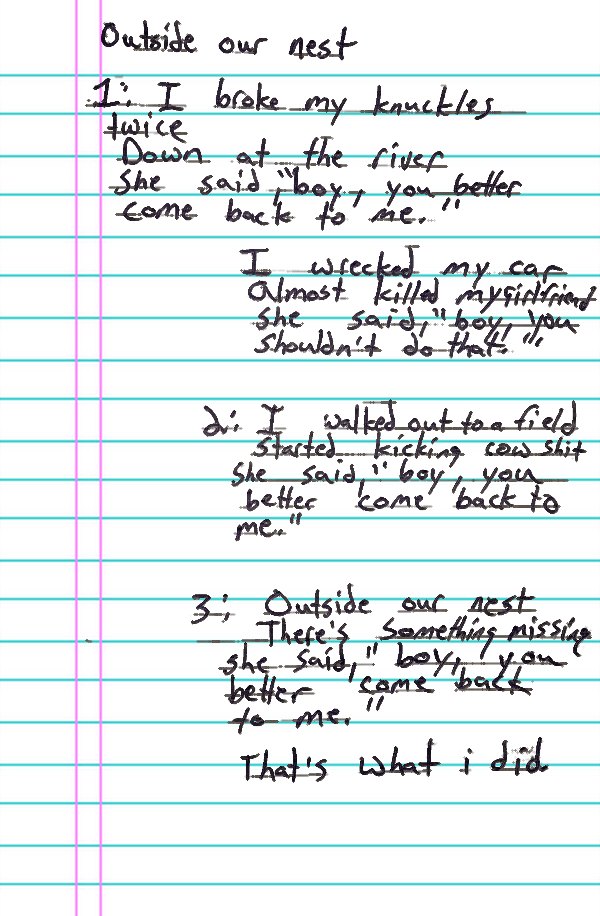 Outside our nest
1: I broke my knuckles
twice
Down at the river
She said, "boy, you better
come back to me."
I wrecked my car
Almost killed my girlfriend
She said, "boy, you
shouldn't do that."
2: I walked out to a field
Started kicking cow shit
She said, "boy, you
better come back to
me."
3: Outside our nest
There's something missing
She said, "boy, you
better come back
to me."
That's what i did.